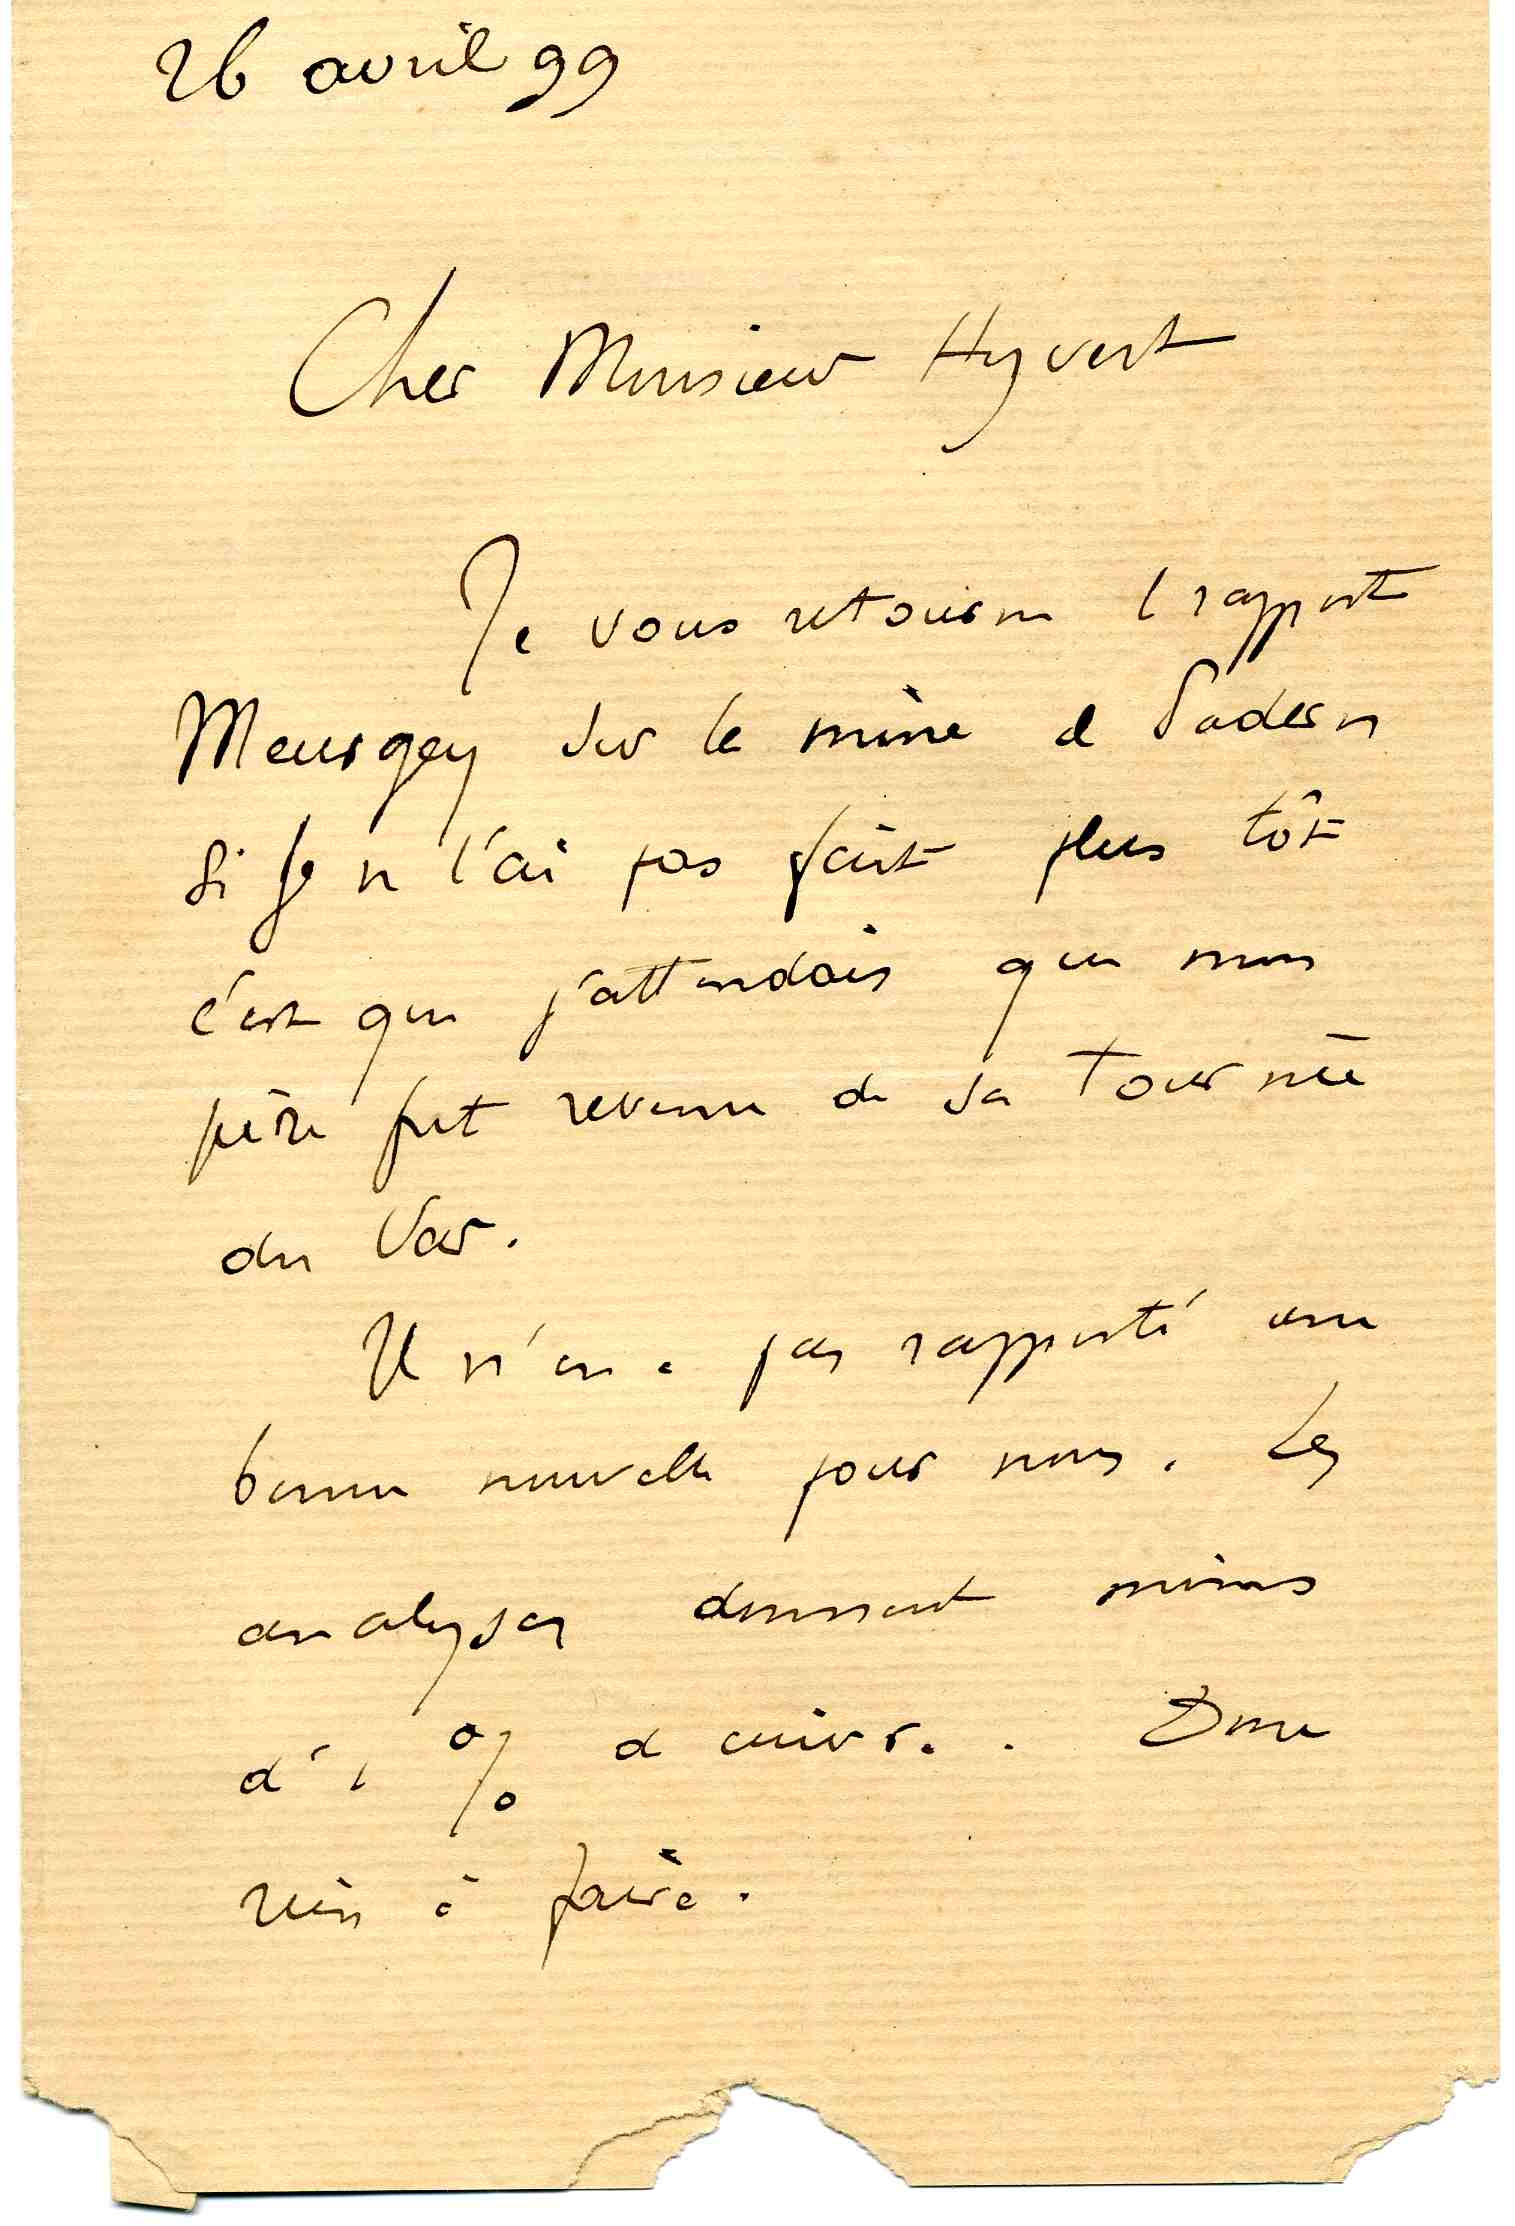 26 avril 99
Cher Monsieur Hyvert
Je vous retourne le rapport
Meurgey sur la mine de Padern
Si je ne l'ai pas fait plus tôt
c'est que j'attendais que mon
père fut revenu de sa tournée
du Var.
Il n'en a pas rapporté une
bonne nouvelle pour nous. Les
analyses donnent moins
d'1 % de cuivre. Donc
rien à faire.